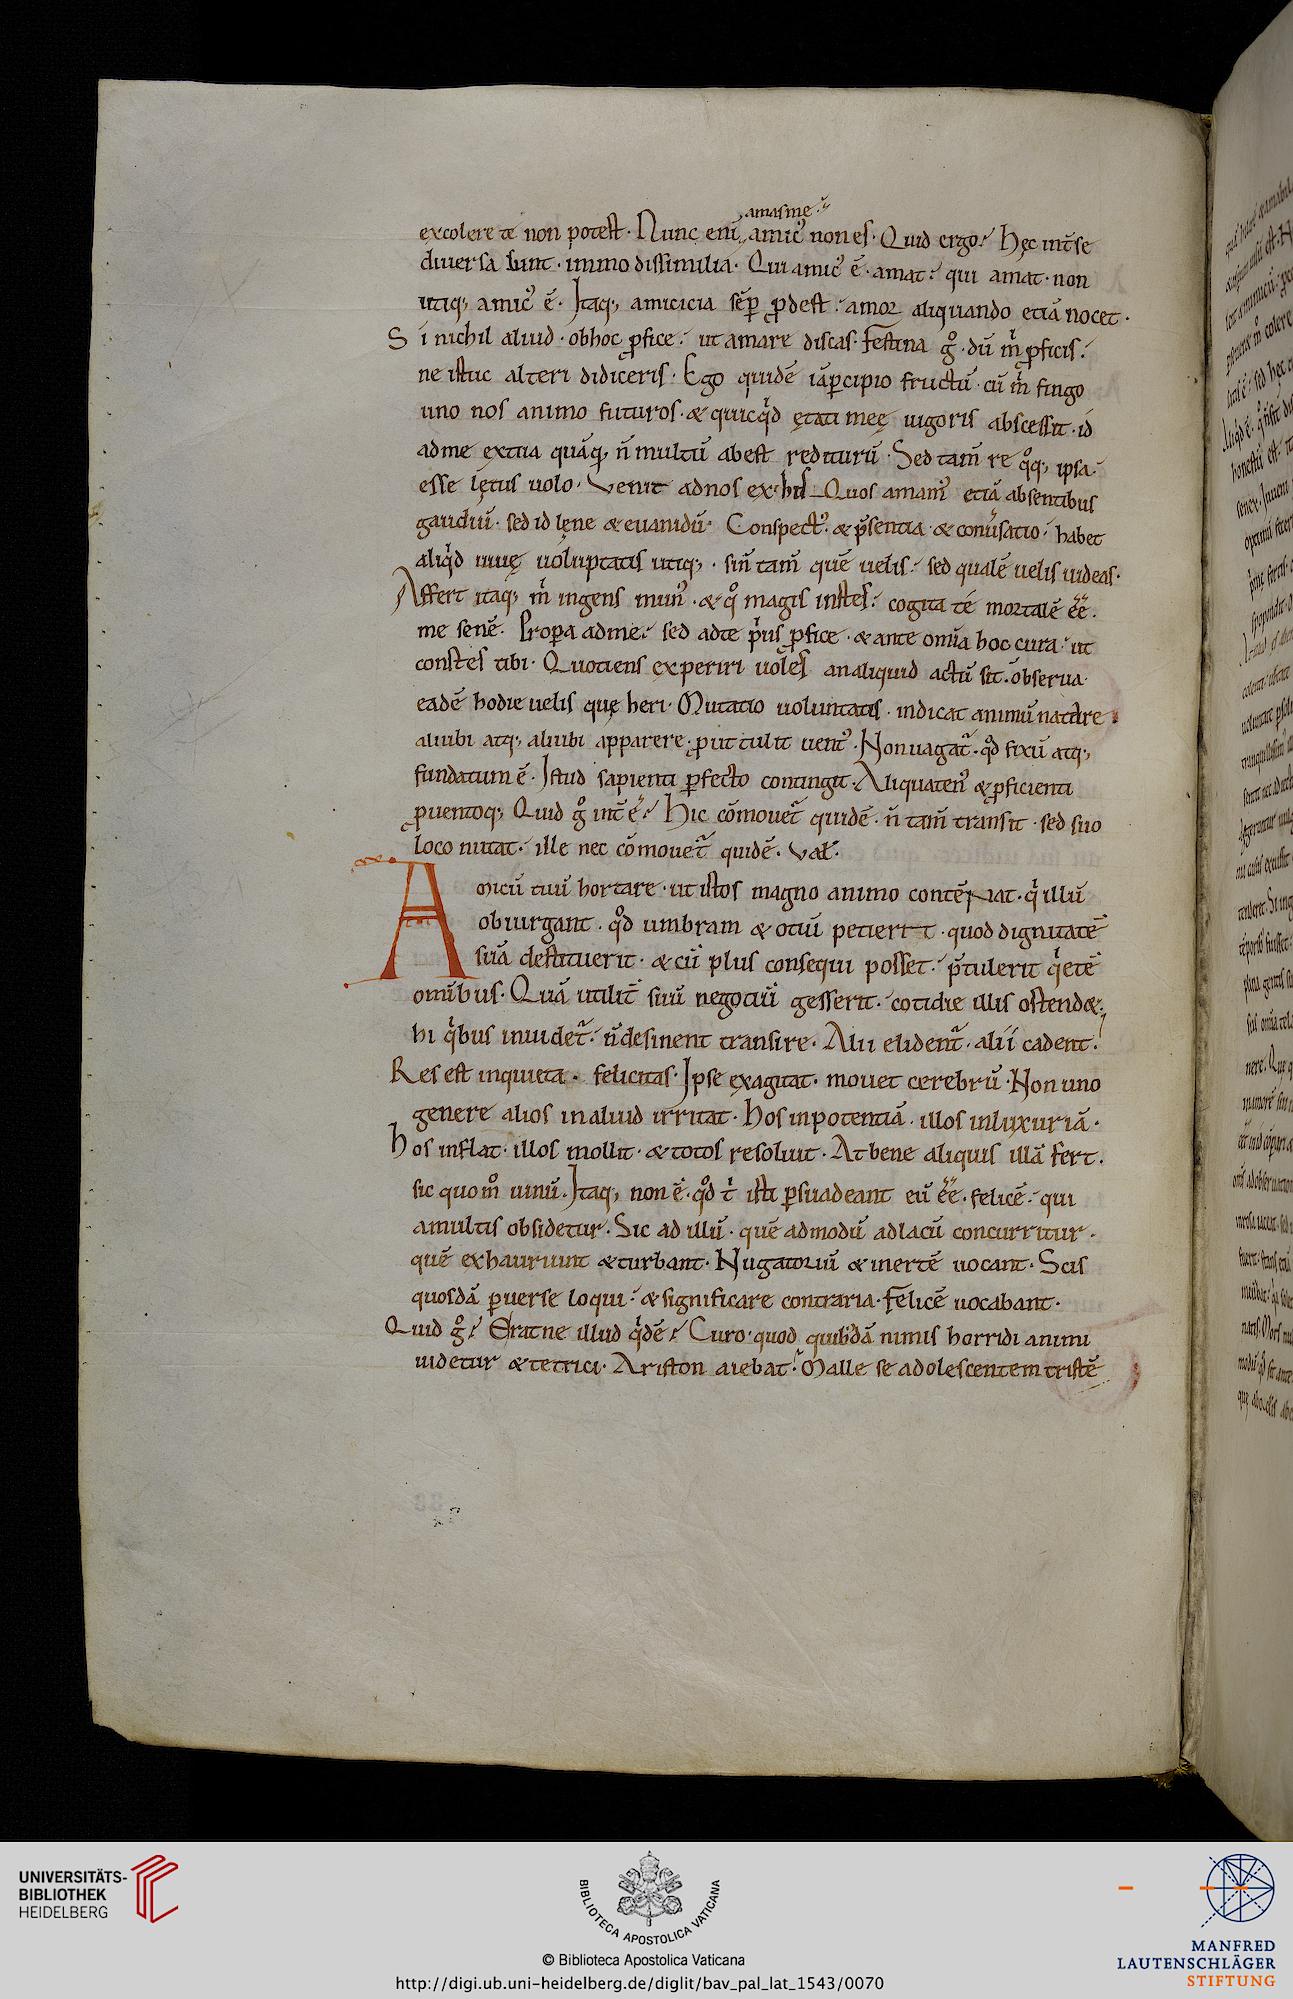 amas me·
excolere te non potest· Nunc eni᷄ amic᷒ non es· Quid ergo? Hęc int̄ se
diuersa sunt· immo dissimilia· Qui amic᷒ ē· amat· qui amat· non
utiq; amic᷒ ē· Itaq; amicicia sēp ꝓdest· amor aliquando etiā nocet·
Si nichil aliud· ob hoc ꝓfice· ut amare discas· Festina gͦ· dū mͥ ꝓficis·
ne istuc alteri didiceris· Ego quidē iā ꝑcipio fructū· cū mͥ fingo
uno nos animo futuros· & quicqͥd ętati meę uigoris abscessit· id
ad me ex tua quāq; n̄ multū abest rediturū· Sed tam̄ re qͦq; ipsa·
esse lętus uolo· Venit ad nos ex his Quos amam᷒ etiā absentibus
gaudiū· sed id lene & euanidū· Conspect᷒· & p̄sentia· & conuͥsatio· habet
aliqͥd uiuę uoluptatis utiq;· sin̄ tam̄ quē uelis· sed qualē uelis uideas·
Affert itaq; mͥ ingens mun᷒· & qͦ magis instes· cogita té mortalē ēē·
me senē· Propa ad me· sed ad te pͥus ꝓfice· & ante omīa hoc cura· ut
constes tibi· Quotiens experiri uoles an aliquid actū sit· obserua
eadē hodie uelis quę heri· Mutatio uoluntatis· indicat animū natare
aliubi atq; aliubi apparere· ꝓut tulit uent᷒· Non uagat᷑· qͦd fixū atq;
fundatum ē· Istud sapienti ꝑfecto contingit· Aliquaten᷒ & ꝓficienti
ꝓuentoq; Quid gͦ int̄ē? Hic cōmouet᷑ quidē· n̄ tam̄ transit· sed suo
loco nutat· ille nec cōmouet᷑ quidē· Val̄·
Amicū tuū hortare· ut istos magno animo contēpnat· qͥ illū
obiurgant· qͦd umbram & otiū petierit· quod dignitatē
suā destituerit· & cū plus consequi posset· p̄tulerit qͥetē
omībus· Quā utilit̄ suū negotiū gesserit· cotidie illis ostend&·
hi qͥbus inuidet᷑· n̄ desinent transire· Alii elident᷑· alii cadent·
Res est inquieta· felicitas· Ipse exagitat· mouet cerebrū· Non uno
genere alios in aliud irritat· hos in potentiā· illos in luxuriā·
hos inflat· illos mollit· & totos resoluit· At bene aliquis illā fert·
sic quomͦ uinū· Itaq; non ē· qͦd tͥ isti ꝑsuadeant eū ēē· felicē· qui
a multis obsidetur· Sic ad illū· quē admodū ad lacū concurritur·
quē exhauriunt & turbant· Nugatoriū & inertē uocant· Scis
quosdā ꝑuerse loqui· & significare contraria· Felicē uocabant·
Quid gͦ? Erat ne illud qͥdē? Curo· quod quib᷒dā nimis horridi animi
uidetur & tetrici· Ariston aiebat· Malle se adolescentem tristē
UNIVERSITÄTS-
BIBLIOTHEK
HEIDELBERG
BIBLIOTECA APOSTOLICA VATICANA
© Biblioteca Apostolica Vaticana
http://digi.ub.uni-heidelberg.de/diglit/bav_pal_lat_1543/0070
MANFRED
LAUTENSCHLÄGER
STIFTUNG